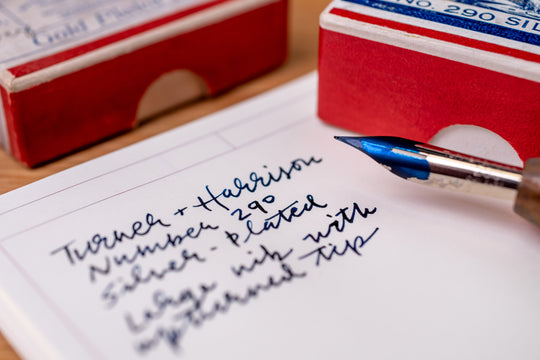 Gold Plated
NO. 290 SIL
Turner + Harrison
Number 290
Silver-Plated
Large nib with
upturned tip